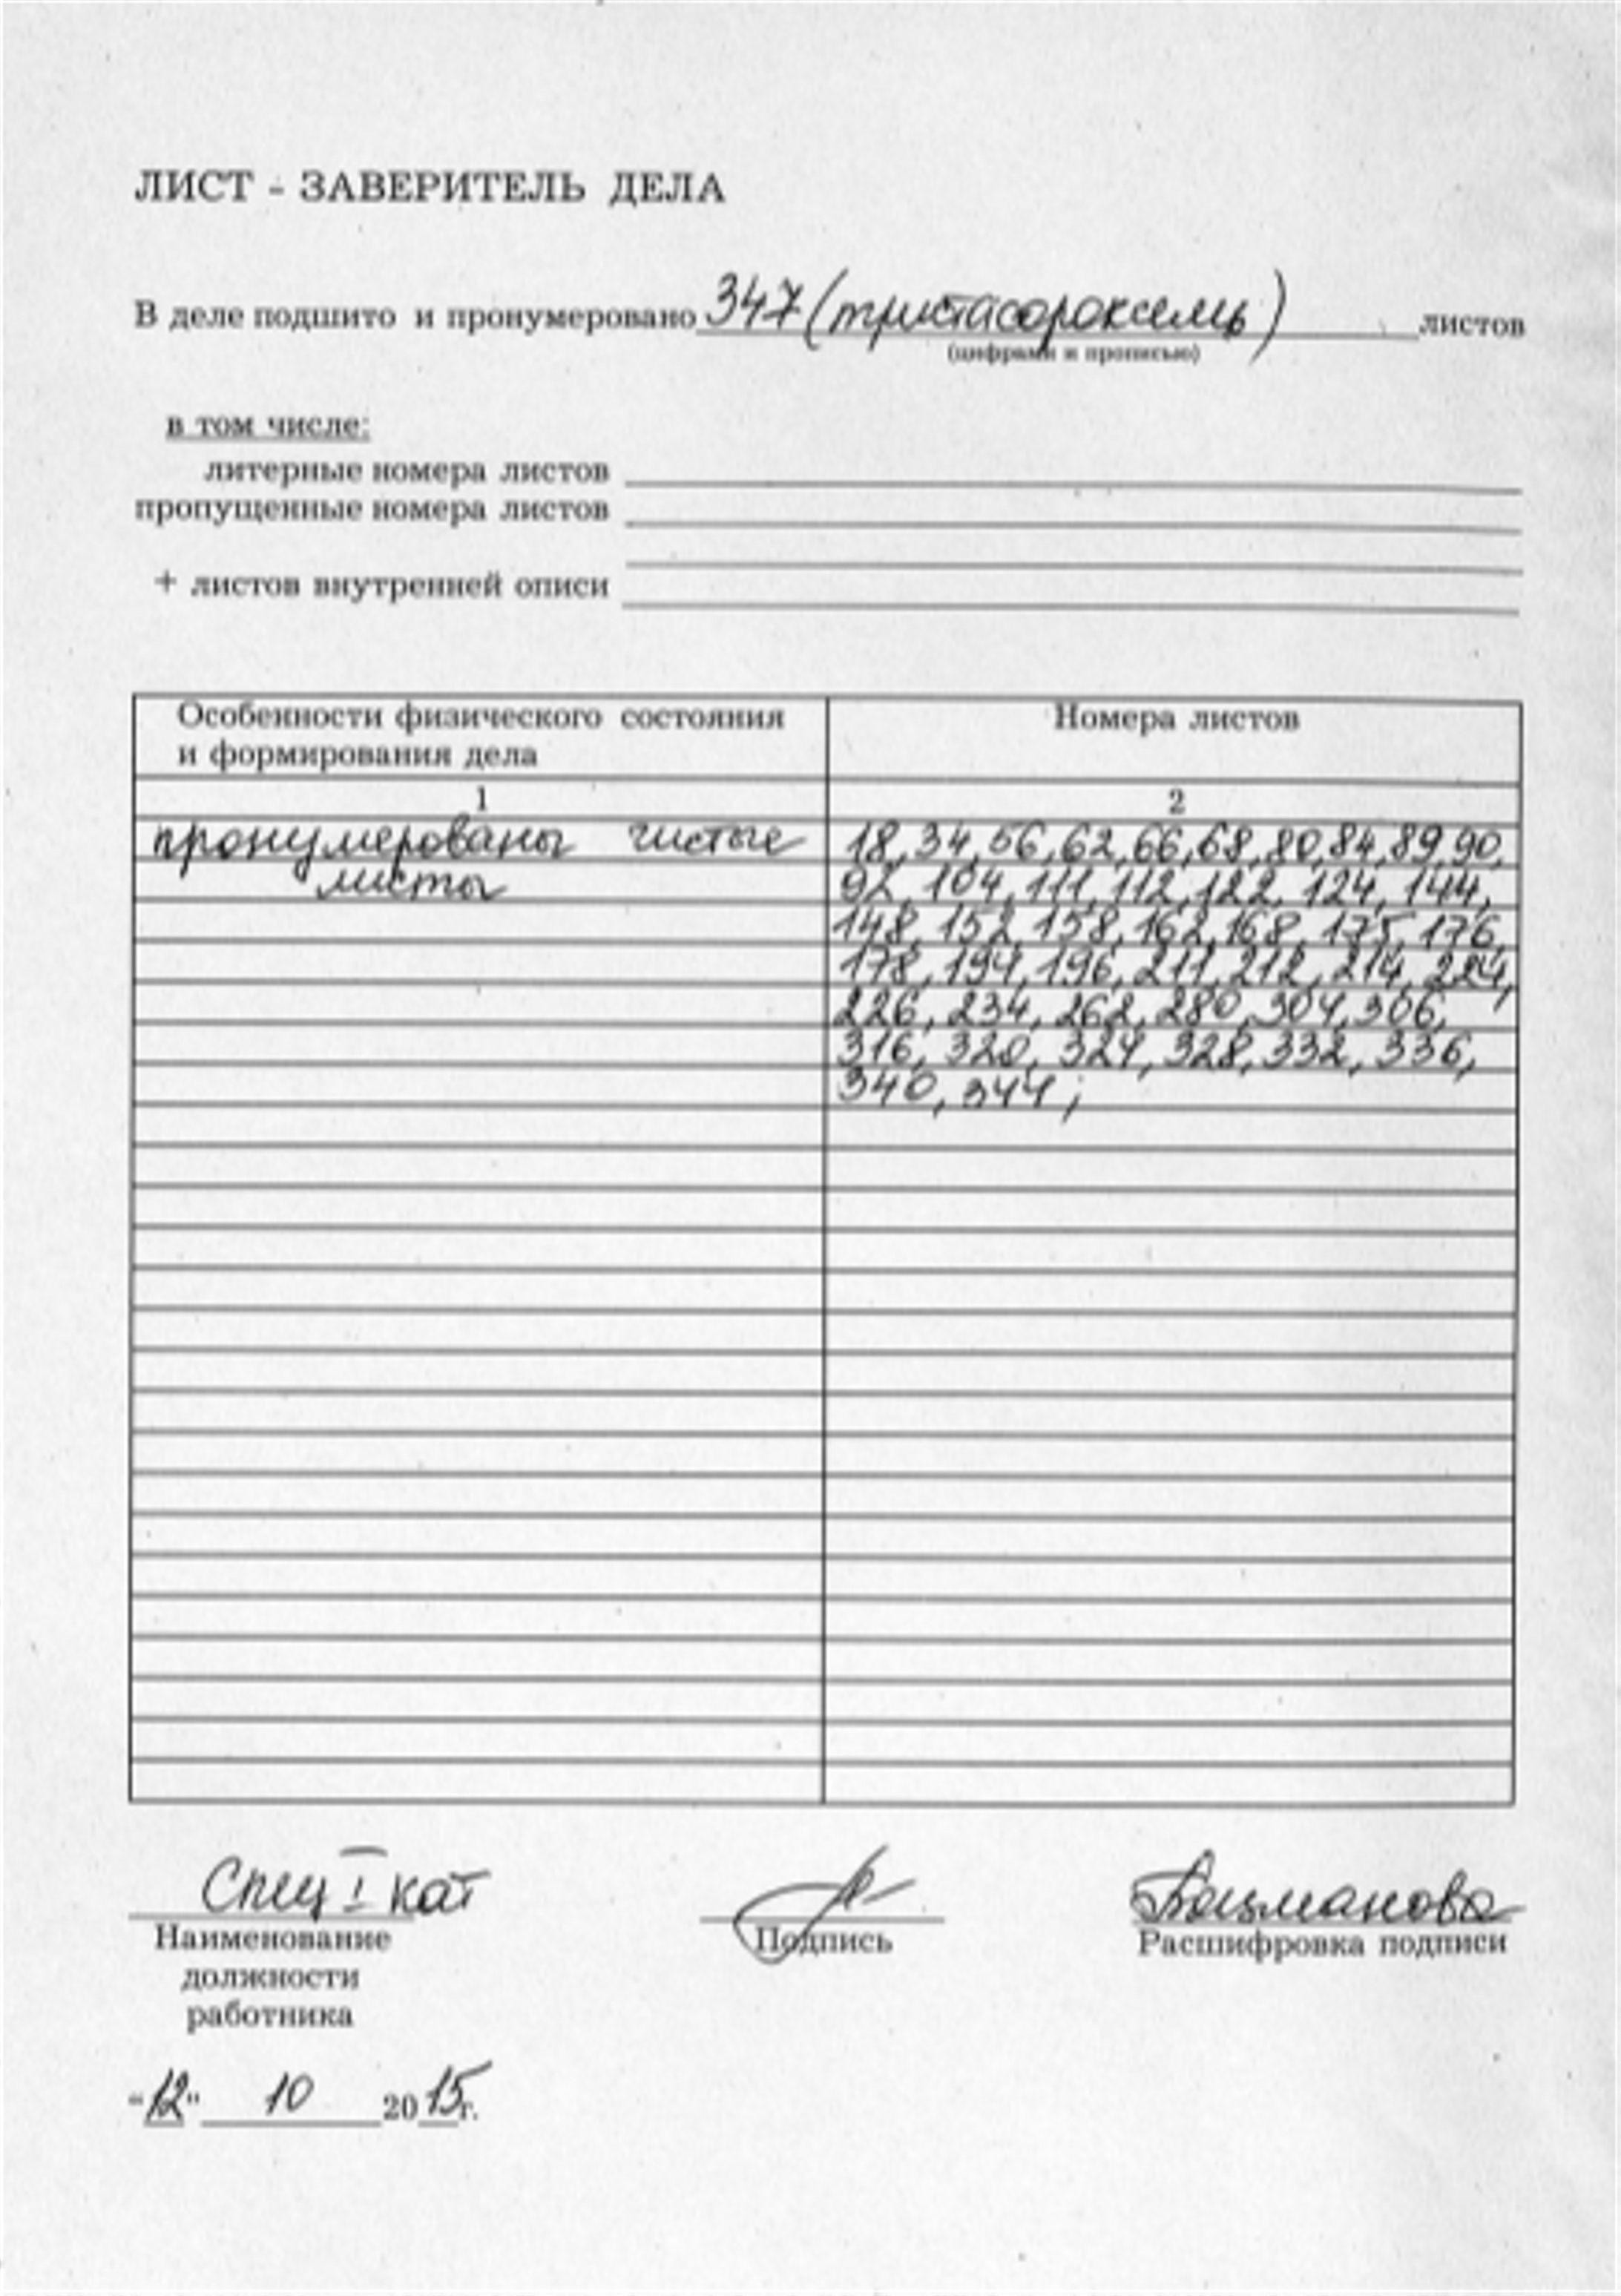 ЛИСТ - ЗАВЕРИТЕЛЬ ДЕЛА
В деле подшито и пронумеровано 347 (тристасороксемь) листов
(цифрами и прописью)
в том числе:
литерные номера листов
пропущенные номера листов
+ листов внутренней описи
Особенности физического состояния Номера листов
и формирования дела
1 2
пронумерованы чистые 18, 34, 56, 62, 66, 68, 80, 84, 89, 90,
листы 92, 104, 111, 112, 122, 124, 144,
148, 152, 158, 162, 168, 175, 176,
178, 194, 196, 211, 212, 214, 224,
226, 234, 262, 280, 304, 306,
316, 320, 324, 328, 332, 336,
340, 344;
Спец I кат Бацманова
Наименование Подпись Расшифровка подписи
должности
работника
"12" 10 2015г.